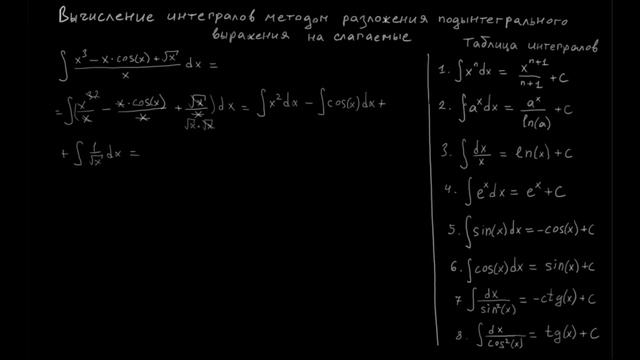 Вычисление интегралов методом разложения подынтегрального
выражения на слагаемые
∫ (x³ − x·cos(x) + √x)/x dx =
= ∫(x³²/x − x·cos(x)/x + √x/x) dx = ∫x²dx − ∫cos(x)dx +
√x·√x
+ ∫ 1/√x dx =
Таблица интегралов
1. ∫xⁿdx = xⁿ⁺¹/(n+1) + C
2. ∫aˣdx = aˣ/ln(a) + C
3. ∫dx/x = ln(x) + C
4. ∫eˣdx = eˣ + C
5. ∫sin(x)dx = −cos(x) + C
6. ∫cos(x)dx = sin(x) + C
7 ∫dx/sin²(x) = −ctg(x) + C
8. ∫dx/cos²(x) = tg(x) + C